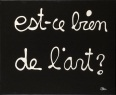 est-ce bien
de l'art?